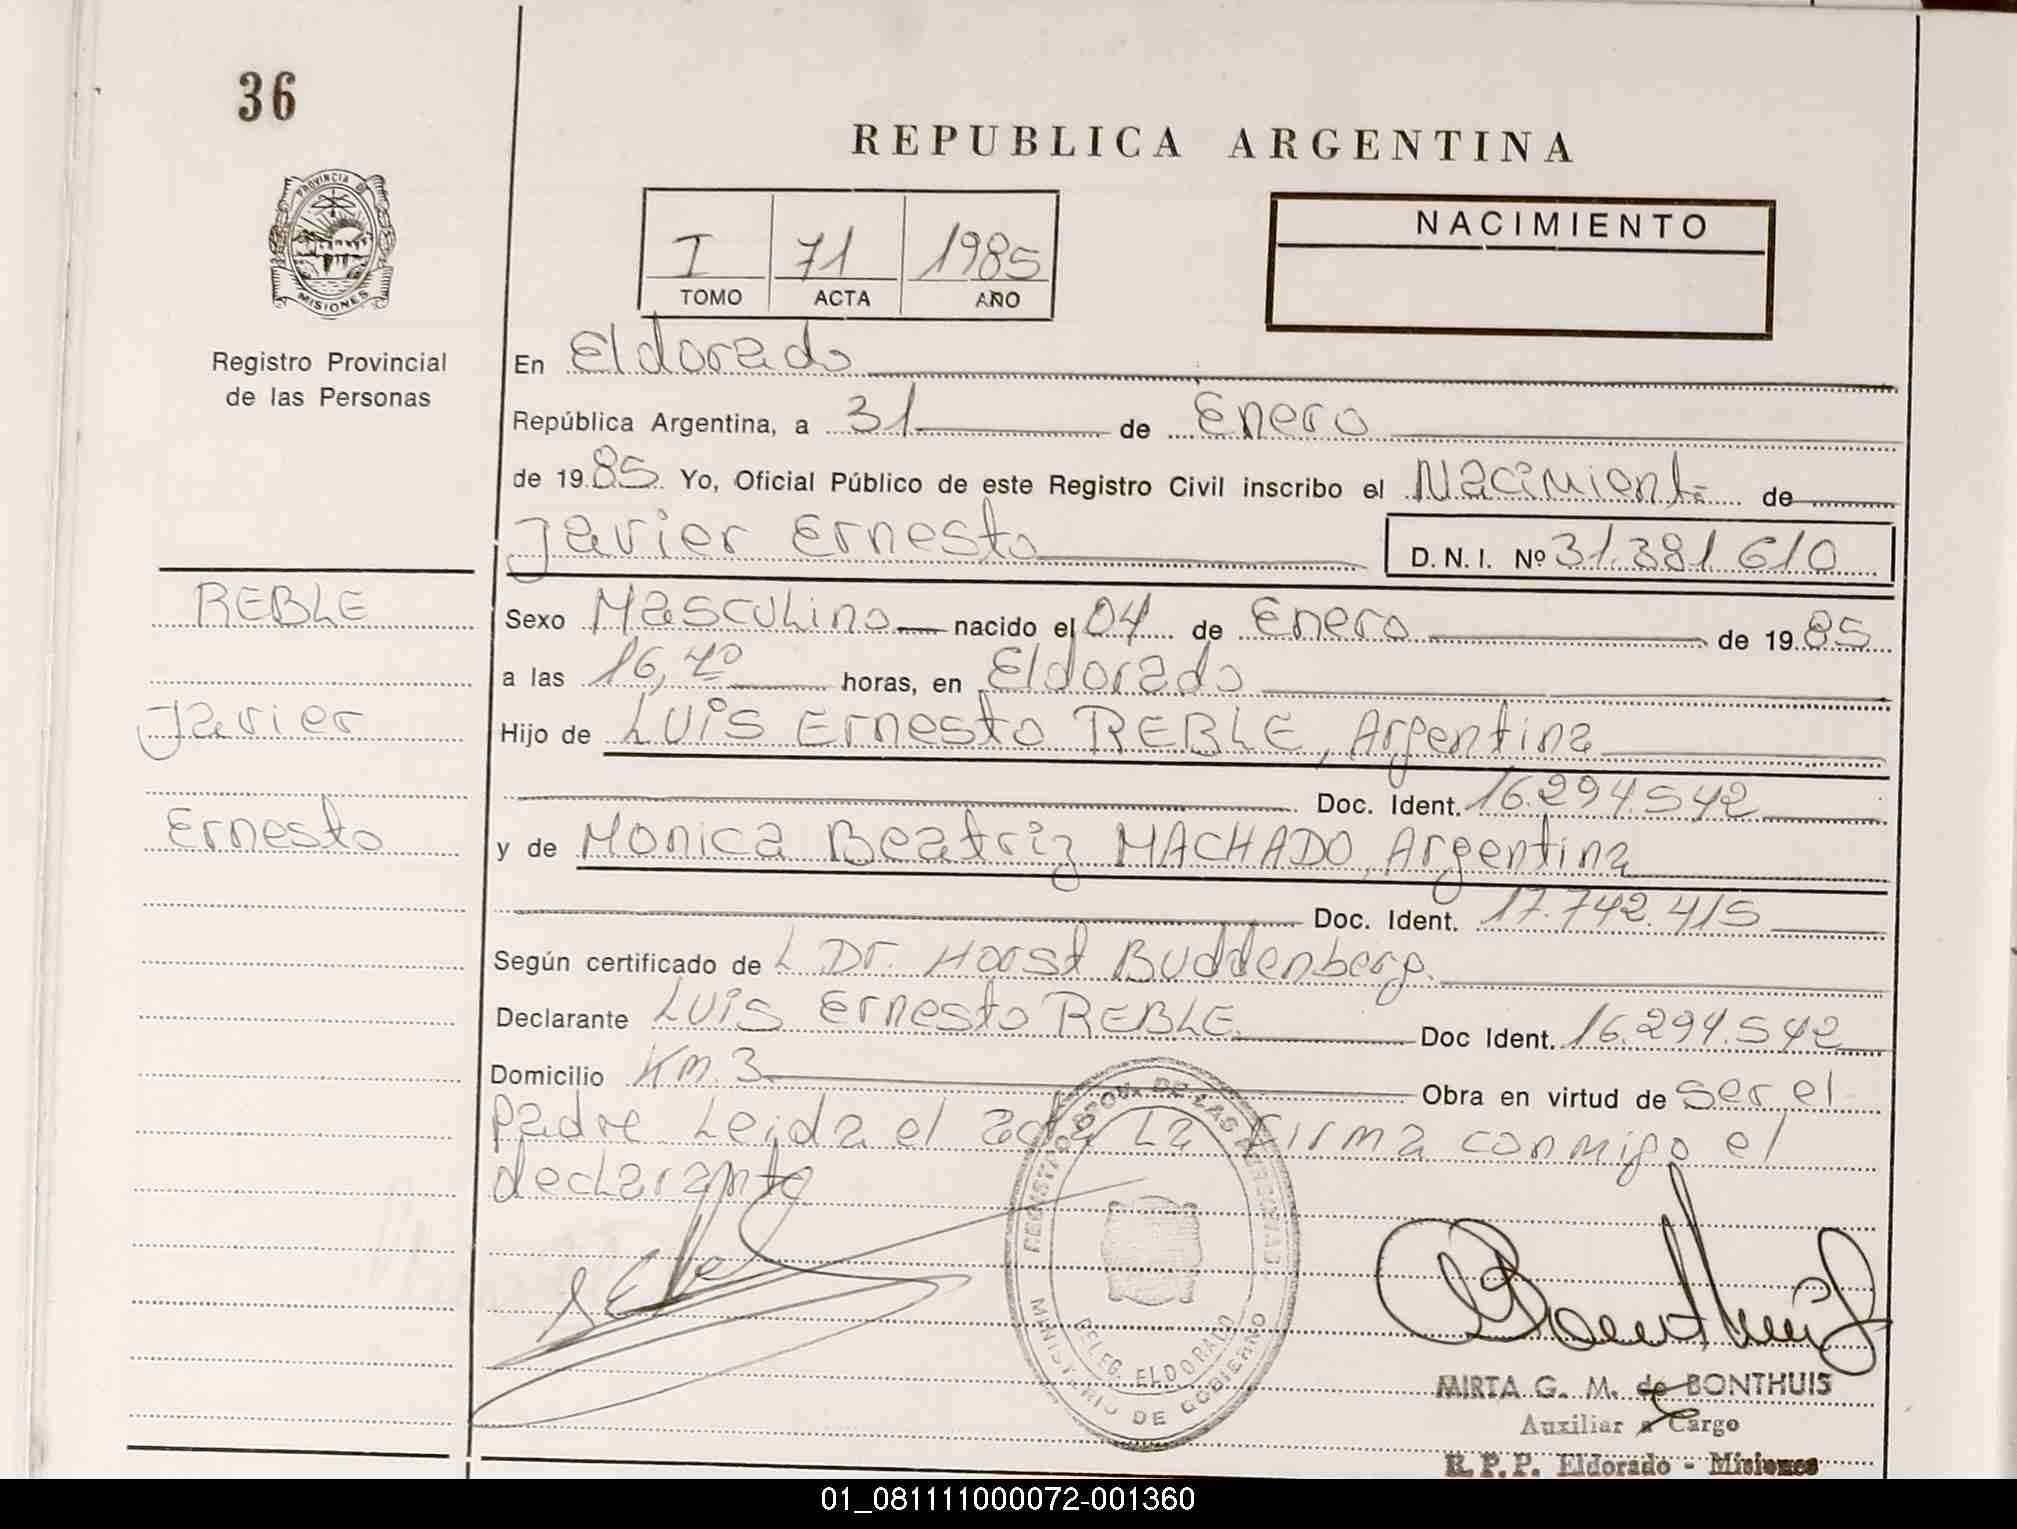 36
REPUBLICA ARGENTINA
PROVINCIA DE
MISIONES
Registro Provincial
de las Personas
I 71 1985
TOMO ACTA AÑO
NACIMIENTO
En Eldorado
República Argentina, a 31 de Enero
de 1985 Yo, Oficial Público de este Registro Civil inscribo el Nacimiento de
Javier Ernesto D. N. I. Nº 31.381.610
REBLE
Javier
Ernesto
Sexo Masculino nacido el 04 de Enero de 1985
a las 16,40 horas, en Eldorado
Hijo de Luis Ernesto REBLE, Argentina
Doc. Ident. 16.294.542
y de Monica Beatriz MACHADO, Argentina
Doc. Ident. 17.742.415
Según certificado de L Dr. Horst Buddenberg.
Declarante Luis Ernesto REBLE Doc Ident. 16.294.542
Domicilio Km. 3 Obra en virtud de ser el
padre Leida el acta La firma conmigo el
declarante
REGISTRO PROV. DE LAS PERSONAS
DELEG. ELDORADO
MINISTERIO DE GOBIERNO
MIRTA G. M. de BONTHUIS
Auxiliar a Cargo
R. P. P. Eldorado - Misiones
01_081111000072-001360